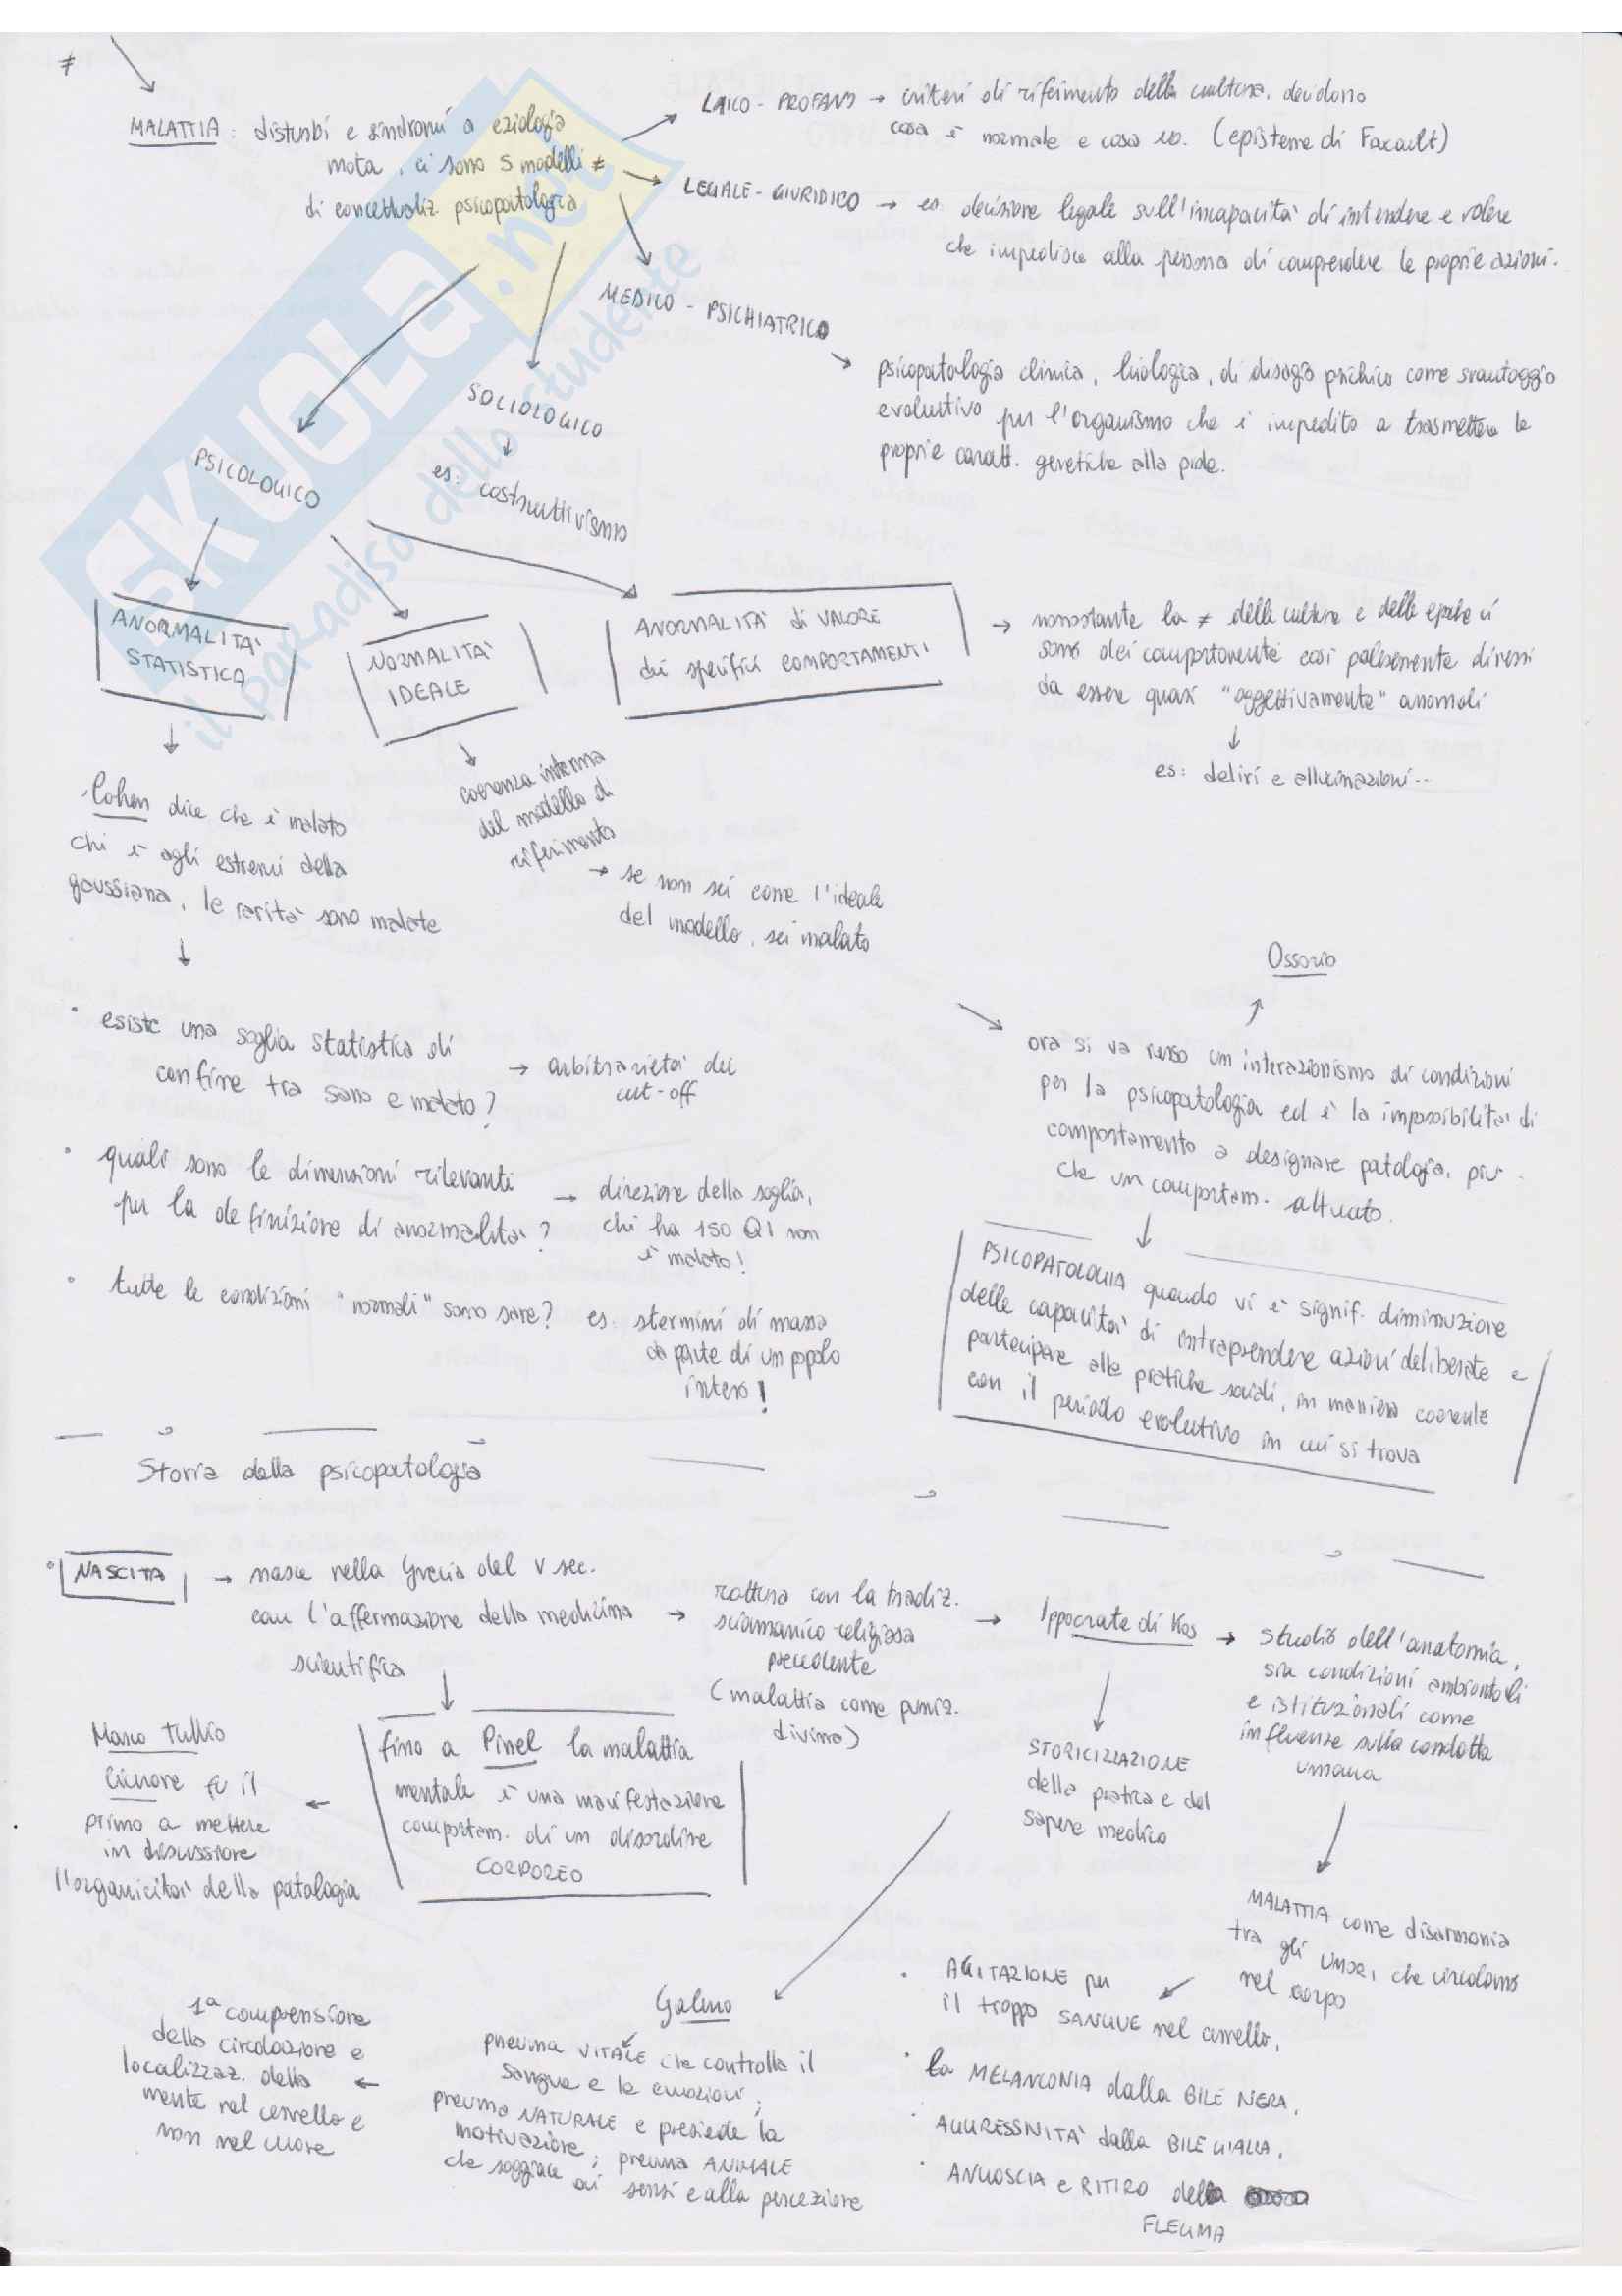 ≠
MALATTIA: disturbi e sindromi a eziologia
nota, ci sono 5 modelli ≠
di concettualiz. psicopatologia
LAICO - PROFANO → criteri di riferimento della cultura, decidono
cosa è normale e cosa no. (episteme di Facault)
LEGALE - GIURIDICO → es. decisione legale sull'incapacità di intendere e volere
che impedisce alla persona di comprendere le proprie azioni.
MEDICO - PSICHIATRICO
psicopatologia clinica, biologica, di disagio psichico come svantaggio
evolutivo per l'organismo che è impedito a trasmettere le
proprie caratt. genetiche alla prole.
SOCIOLOGICO
es: costruttivismo
PSICOLOGICO
ANORMALITA'
STATISTICA
NORMALITA'
IDEALE
ANORMALITA' di VALORE
di specifici COMPORTAMENTI
→ nonostante la ≠ delle culture e delle epoche ci
sono dei comportamenti così palesemente diversi
da essere quasi "oggettivamente" anomali
es: deliri e allucinazioni...
Cohen dice che è malato
chi è agli estremi della
gaussiana, le rarità sono malate
coerenza interna
del modello di
riferimento
→ se non sei come l'ideale
del modello, sei malato
• esiste una soglia statistica di
confine tra sano e malato?
→ arbitrarietà dei
cut-off
• quali sono le dimensioni rilevanti
per la definizione di anormalità?
→ direzione della soglia,
chi ha 150 QI non
è malato!
• tutte le condizioni "normali" sono sane?
es. stermini di massa
da parte di un popolo
intero!
Ossorio
ora si va verso un interazionismo di condizioni
per la psicopatologia ed è la impossibilità di
comportamento a designare patologia, più
che un comportam. attuato.
PSICOPATOLOGIA quando vi è signif. diminuzione
delle capacità di intraprendere azioni deliberate e
partecipare alle pratiche sociali, in maniera coerente
con il periodo evolutivo in cui si trova
Storia della psicopatologia
• NASCITA → nasce nella Grecia del V sec.
con l'affermazione della medicina
scientifica
→ rottura con la tradiz.
sciamanico-religiosa
precedente
(malattia come puniz.
divina)
→ Ippocrate di Kos
→ studiò dell'anatomia,
sia condizioni ambientali
e istituzionali come
influenze sulla condotta
umana
STORICIZZAZIONE
della pratica e del
sapere medico
fino a Pinel la malattia
mentale è una manifestazione
comportam. di un disordine
CORPOREO
Marco Tullio
Cicerone fu il
primo a mettere
in discussione
l'organicità della patologia
MALATTIA come disarmonia
tra gli UMORI, che circolano
nel corpo
• AGITAZIONE per
il troppo SANGUE nel cervello,
• la MELANCONIA dalla BILE NERA,
• AGGRESSIVITÀ dalla BILE GIALLA,
• ANGOSCIA e RITIRO della
FLEGMA
Galeno
pneuma VITALE che controlla il
sangue e le emozioni;
pneuma NATURALE e presiede la
motivazione; pneuma ANIMALE
che soggiace ai sensi e alla percezione
1ª comprensione
della circolazione e
localizzaz. della
mente nel cervello e
non nel cuore
SKUOLA.net
il paradiso dello studente